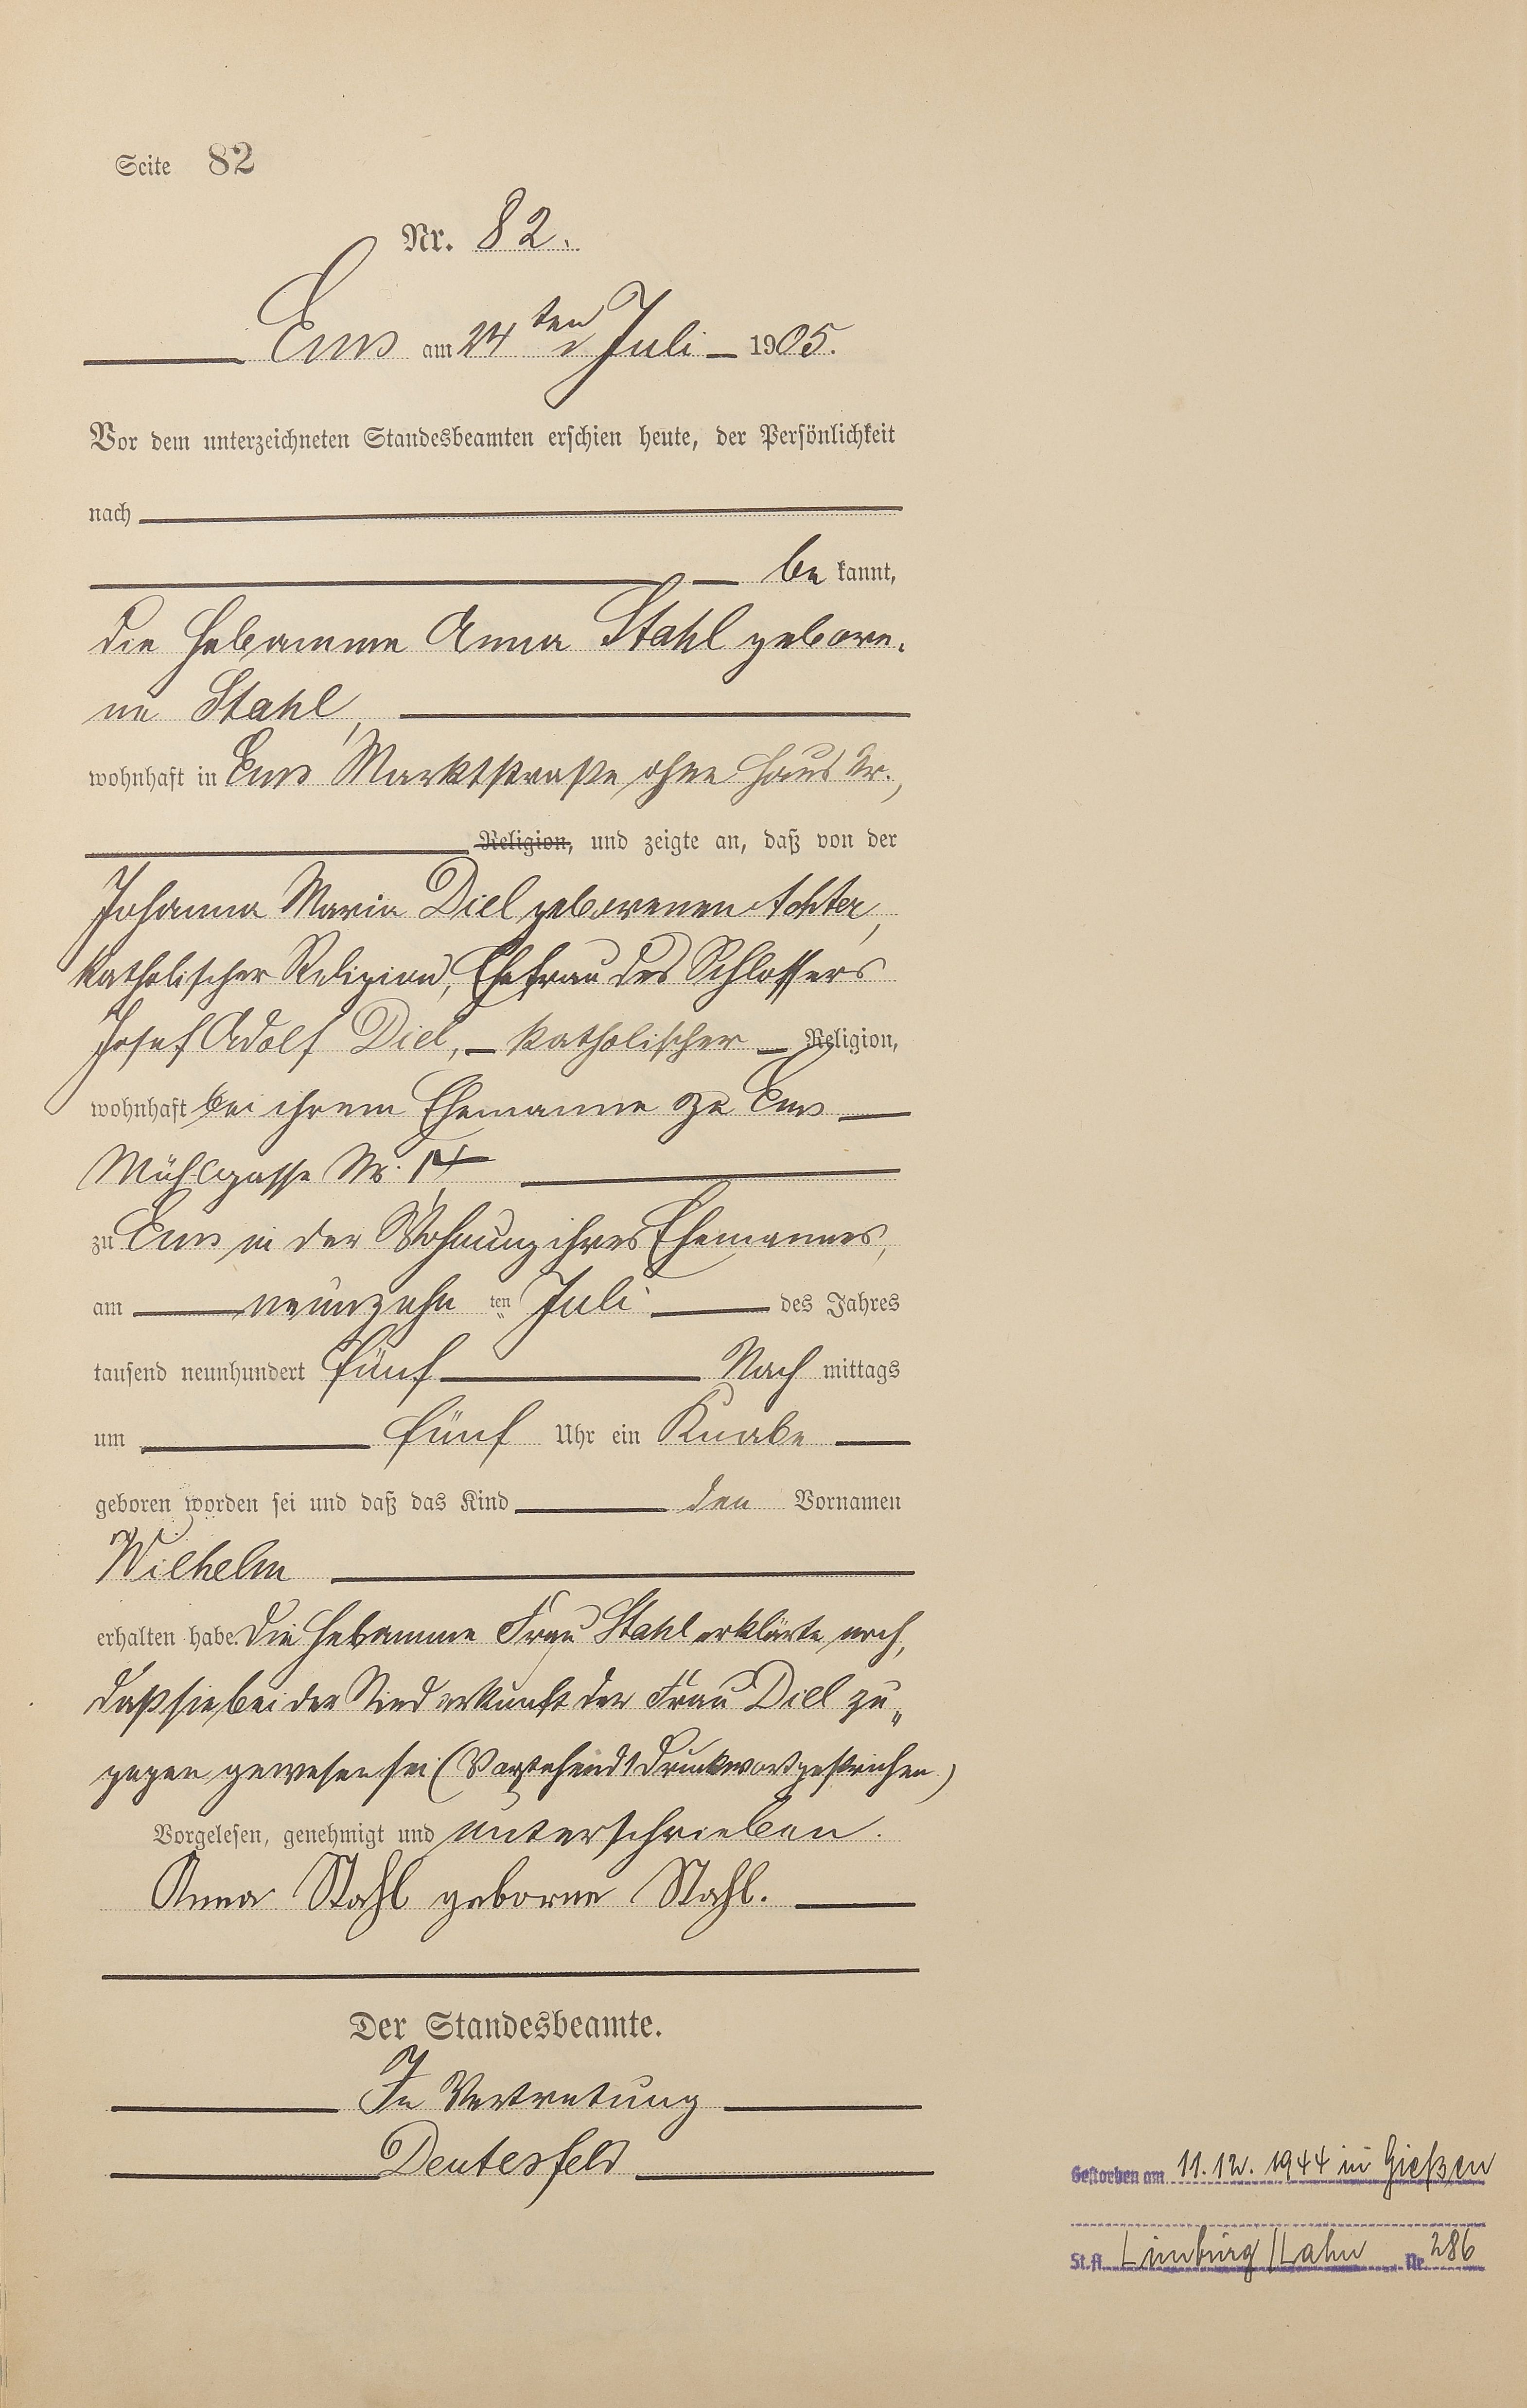 Seite 82
Nr. 82.
Ems am 24ten Juli 1905.
Vor dem unterzeichneten Standesbeamten erschien heute, der Persönlichkeit
nach
be kannt,
die Hebamme Anna Stahl gebore-
ne Stahl,
wohnhaft in Ems Marktstraße ohne Haus Nr.,
Religion, und zeigte an, daß von der
Johanna Maria Diel geborenen Achter,
katholischer Religion, Ehefrau des Schlossers
Josef Adolf Diel, katholischer Religion,
wohnhaft bei ihrem Ehemanne zu Ems
Mühlgasse Nr. 14
zu Ems in der Wohnung ihres Ehemannes,
am neunzehn ten Juli des Jahres
tausend neunhundert fünf Nach mittags
um fünf Uhr ein Knabe
geboren worden sei und daß das Kind den Vornamen
Wilhelm
erhalten habe. Die Hebamme Frau Stahl erklärte noch,
daß sie bei der Niederkunft der Frau Diel zu„
gegen gewesen sei (Vorstehend 1 Druckwort gestrichen.)
Vorgelesen, genehmigt und unterschrieben.
Anna Stahl geborne Stahl.
Der Standesbeamte.
In Vertretung
Deutesfeld
Gestorben am 11.12.1944 in Gießen
St.A. Limburg/Lahn Nr. 286